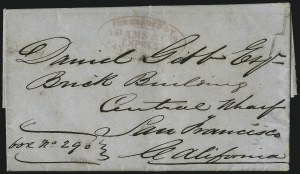 ADAMS & Co
Daniel Gibb Esqr
Brick Building
Central Wharf
San Francisco
box No 290
California